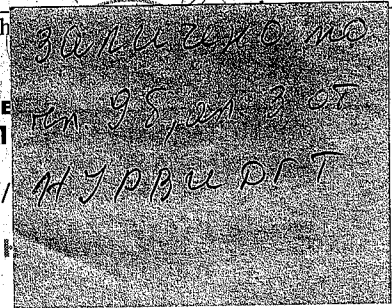 заличено по
чл. 9б, ал 3 от
НУРВИДГТ